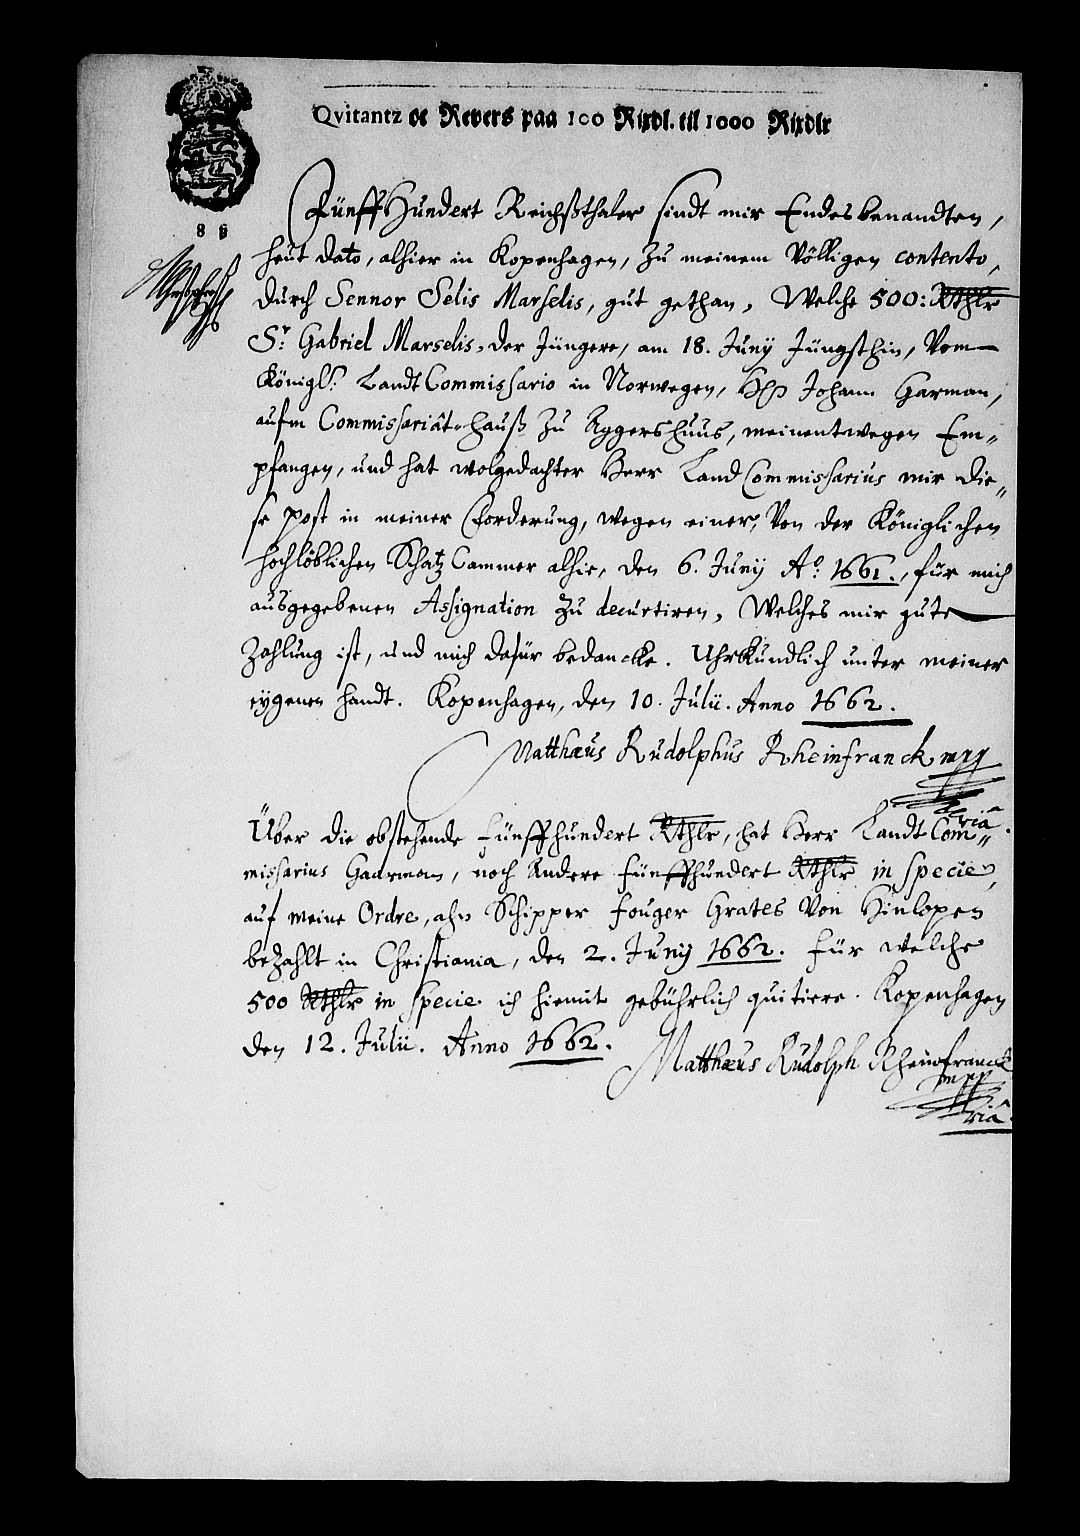 Qvitantz oc Revers paa 100 Rixdl. til 1000 Rixdlr
8 ß
Fünff Hundert Reichßthaler sindt mir Endesbenandten,
heut dato, alhier in Kopenhagen, zu meinem Völligen contento,
durch Sennor Selis Marselis, gut gethan, Welche 500: Rthlr
Sr: Gabriel Marselis, der Jüngere, am 18. Juny Jüngsthin, Vom
Königl: Landt Commissario in Norwegen, H Johann Garman,
aufm Commissariât-hauß zu Aggershuus, meinentwegen Em-
pfangen, und hat wolgedachter Herr Land Commissarius mir die-
se post in meiner Forderung, wegen einer, Von der Königlichen
hochlöblichen Schatz Cammer alhie, den 6. Juny Ao: 1661., für mich
ausgegebenen Assignation zu decurtiren, Welches mir gute
Zahlung ist, und mich dafür bedancke. Uhrkundlich unter meiner
eygenen handt. Kopenhagen, den 10. Julii. Anno 1662.
Matthæus Rudolphus Rheinfranck mpp
riâ.
Über die obstehende fünffhundert Rthlr, hat Herr Landt Com-
missarius Gaarman, noch Andere fünffhundert Rthlr in specie,
auf meine Ordre, ahn Schipper fouger Grates Von Hinlopen
bezahlt in Christiania, den 2. Juny 1662. Für welche
500 Rthlr in specie ich hiemit gebührlich quitiere. Kopenhagen
den 12. Julii. Anno 1662.
Matthæus Rudolph Rheinfranck
mpp
riâ.